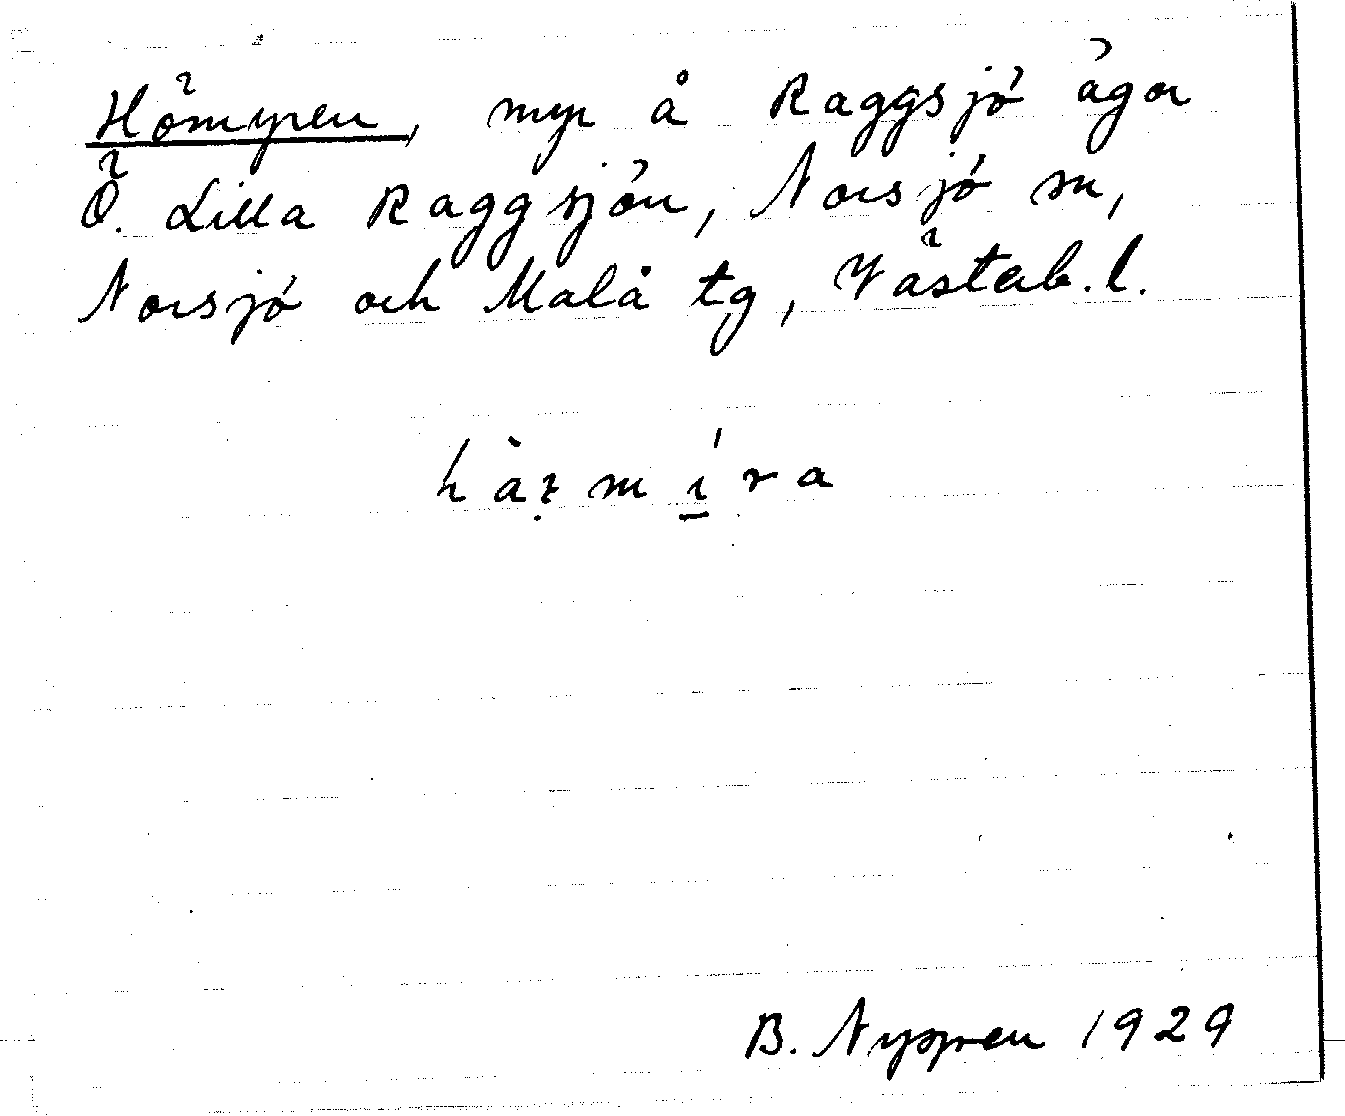 Hömyren, myr å Raggsjö ägor
Ö. Lilla Raggsjön, Norsjö sn,
Norsjö och Malå tg, Västerb. l.
B. Nygren 1929